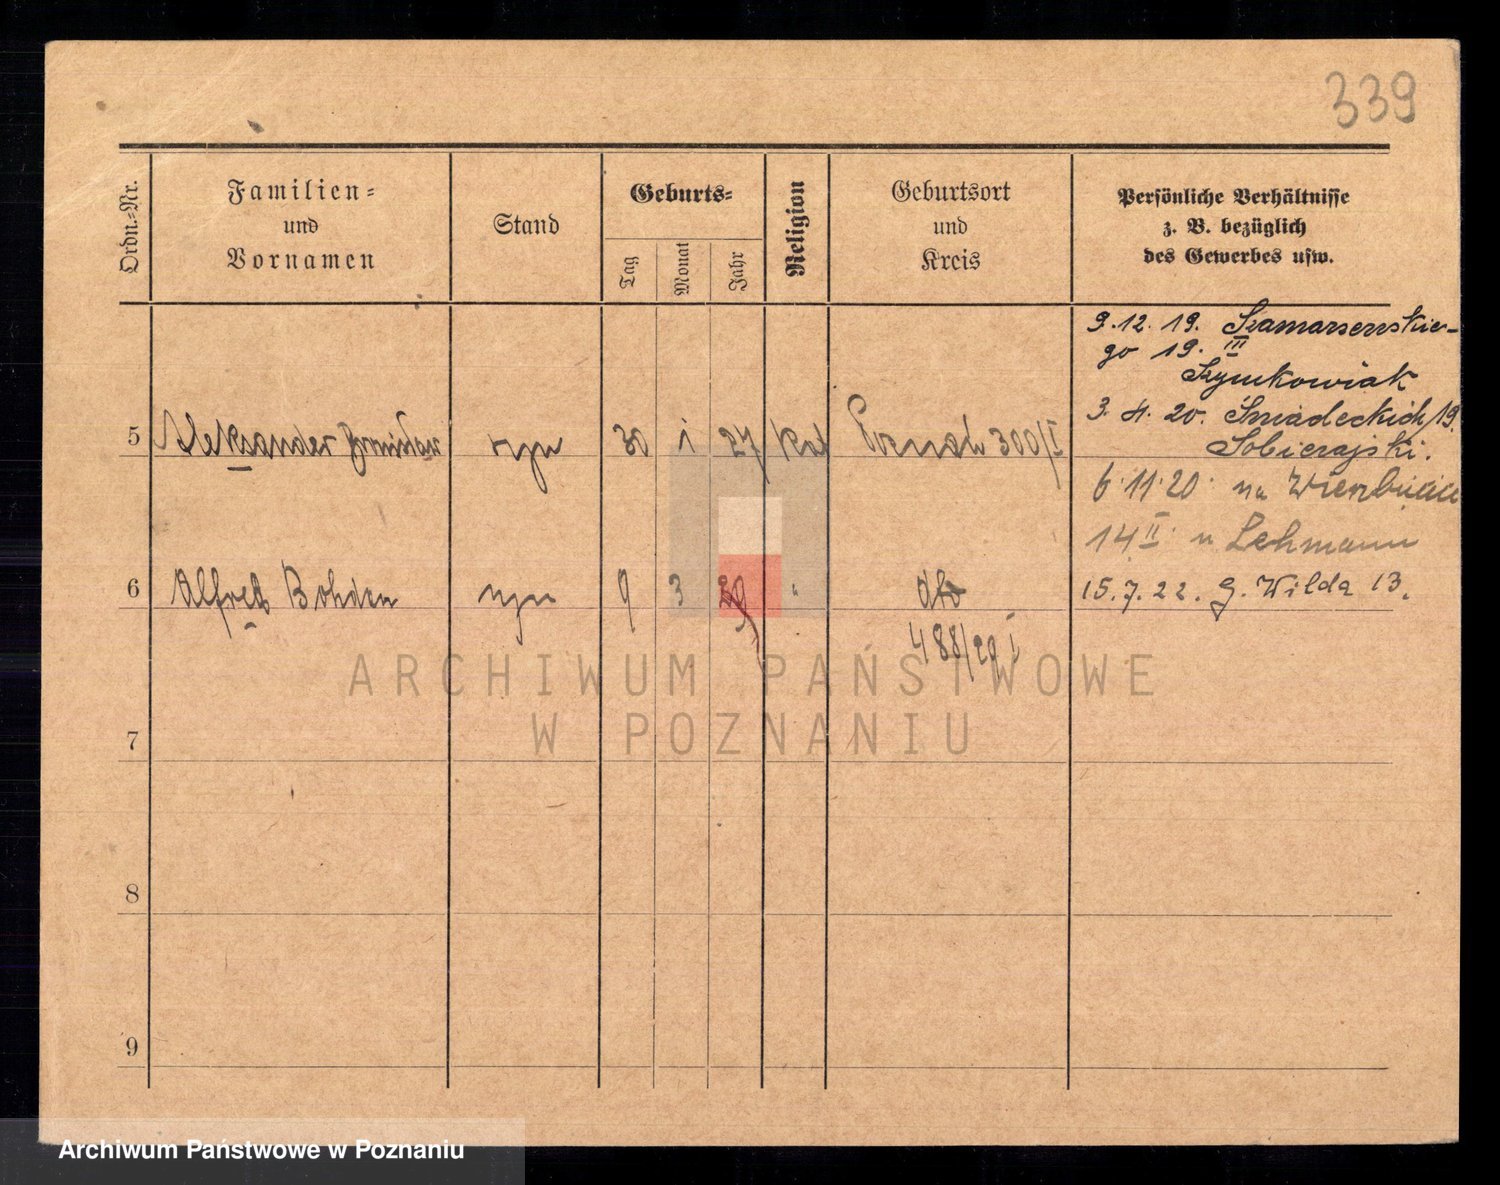 339
Ordn.-Nr.
Familien-
und
Vornamen
Stand
Geburts-
Tag
Monat
Jahr
Religion
Geburtsort
und
Kreis
Persönliche Verhältnisse
z. B. bezüglich
des Gewerbes usw.
9.12.19. Szamarzewskie-
go 19. III
Szymkowiak
3.4.20. Śniadeckich 19.
Sobierajski.
5 Aleksander syn 30 1 27 kat Poznań 300/I
6.11.20 na Wierzbięcice
14 II u Lehmann
6 Alfred Bohdan syn 9 3 29 " dto 15.7.22. G. Wilda 13.
488/29 I
7
8
9
ARCHIWUM PAŃSTWOWE
W POZNANIU
Archiwum Państwowe w Poznaniu